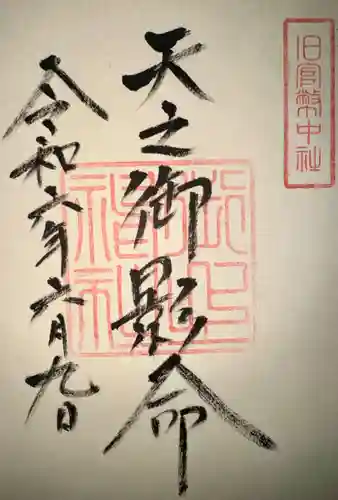 旧官幣中社
天之御影命
令和六年六月九日